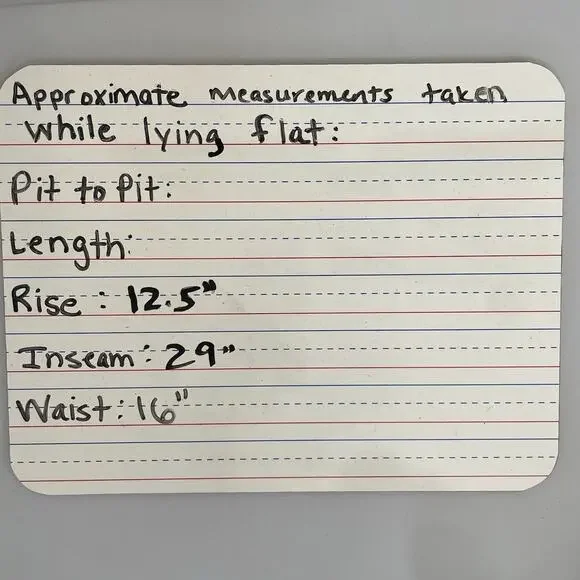 Approximate measurements taken
while lying flat:
Pit to Pit:
Length:
Rise: 12.5"
Inseam: 29"
Waist: 16"